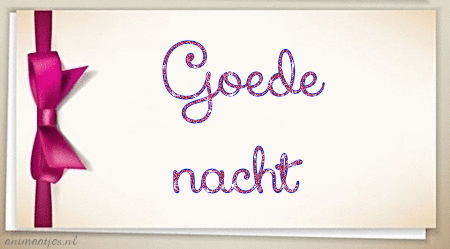 Goede
nacht
animaatjes.nl